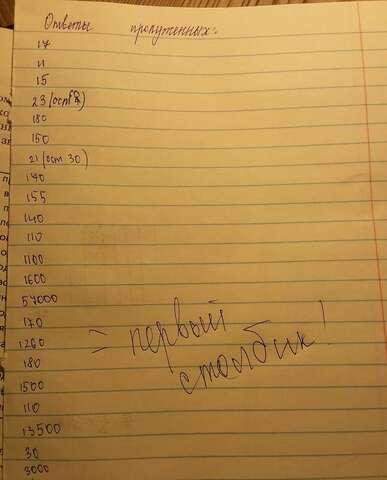 Ответы пропущенных:
17
11
15
23 (ост
180
150
21 (ост 30)
140
155
140
110
1100
1600
54000
170
1260
= первый
180
столбик!
1500
110
13500
30
3000